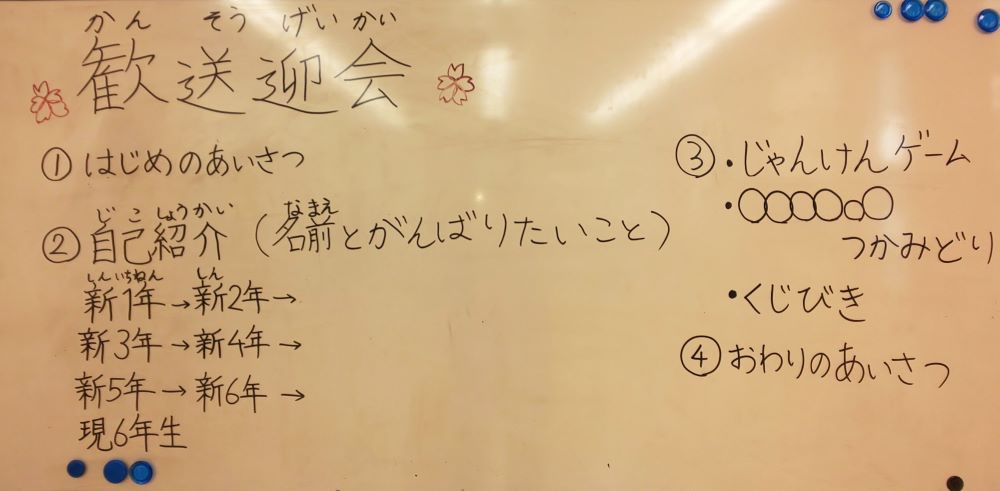 かんそうげいかい
歓送迎会
① はじめのあいさつ
じこしょうかい なまえ
② 自己紹介(名前とがんばりたいこと)
しんいちねん しん
新1年→新2年→
新3年→新4年→
新5年→新6年→
現6年生
③ ・じゃんけんゲーム
・○○○○○○
つかみどり
・くじびき
④ おわりのあいさつ